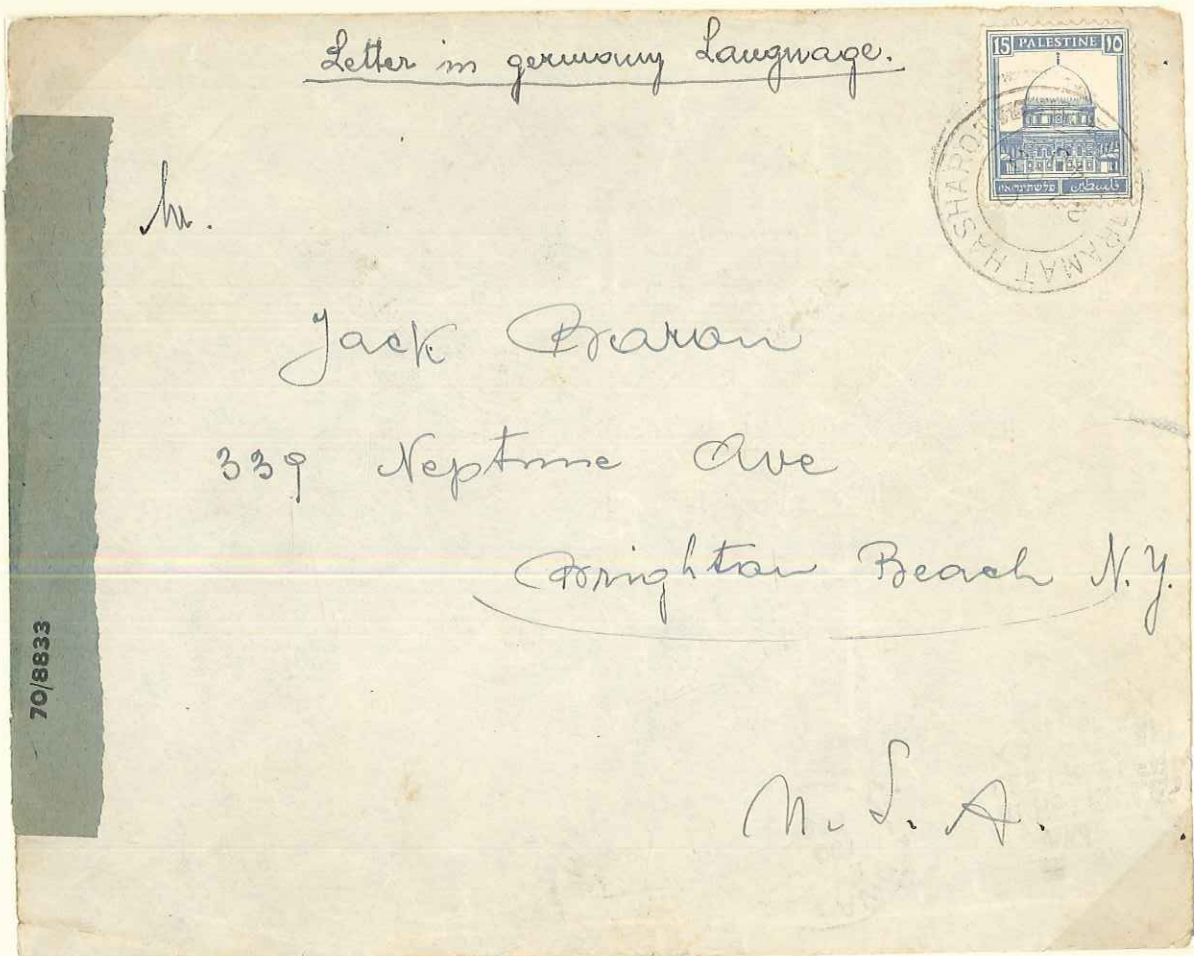 Letter in germany Language.
15 PALESTINE 15
فلسطين פלשתינה א״י
RAMAT HASHARON
Mr.
Jack Baron
339 Neptune Ave
Brighton Beach N.Y.
U.S.A.
70/8833